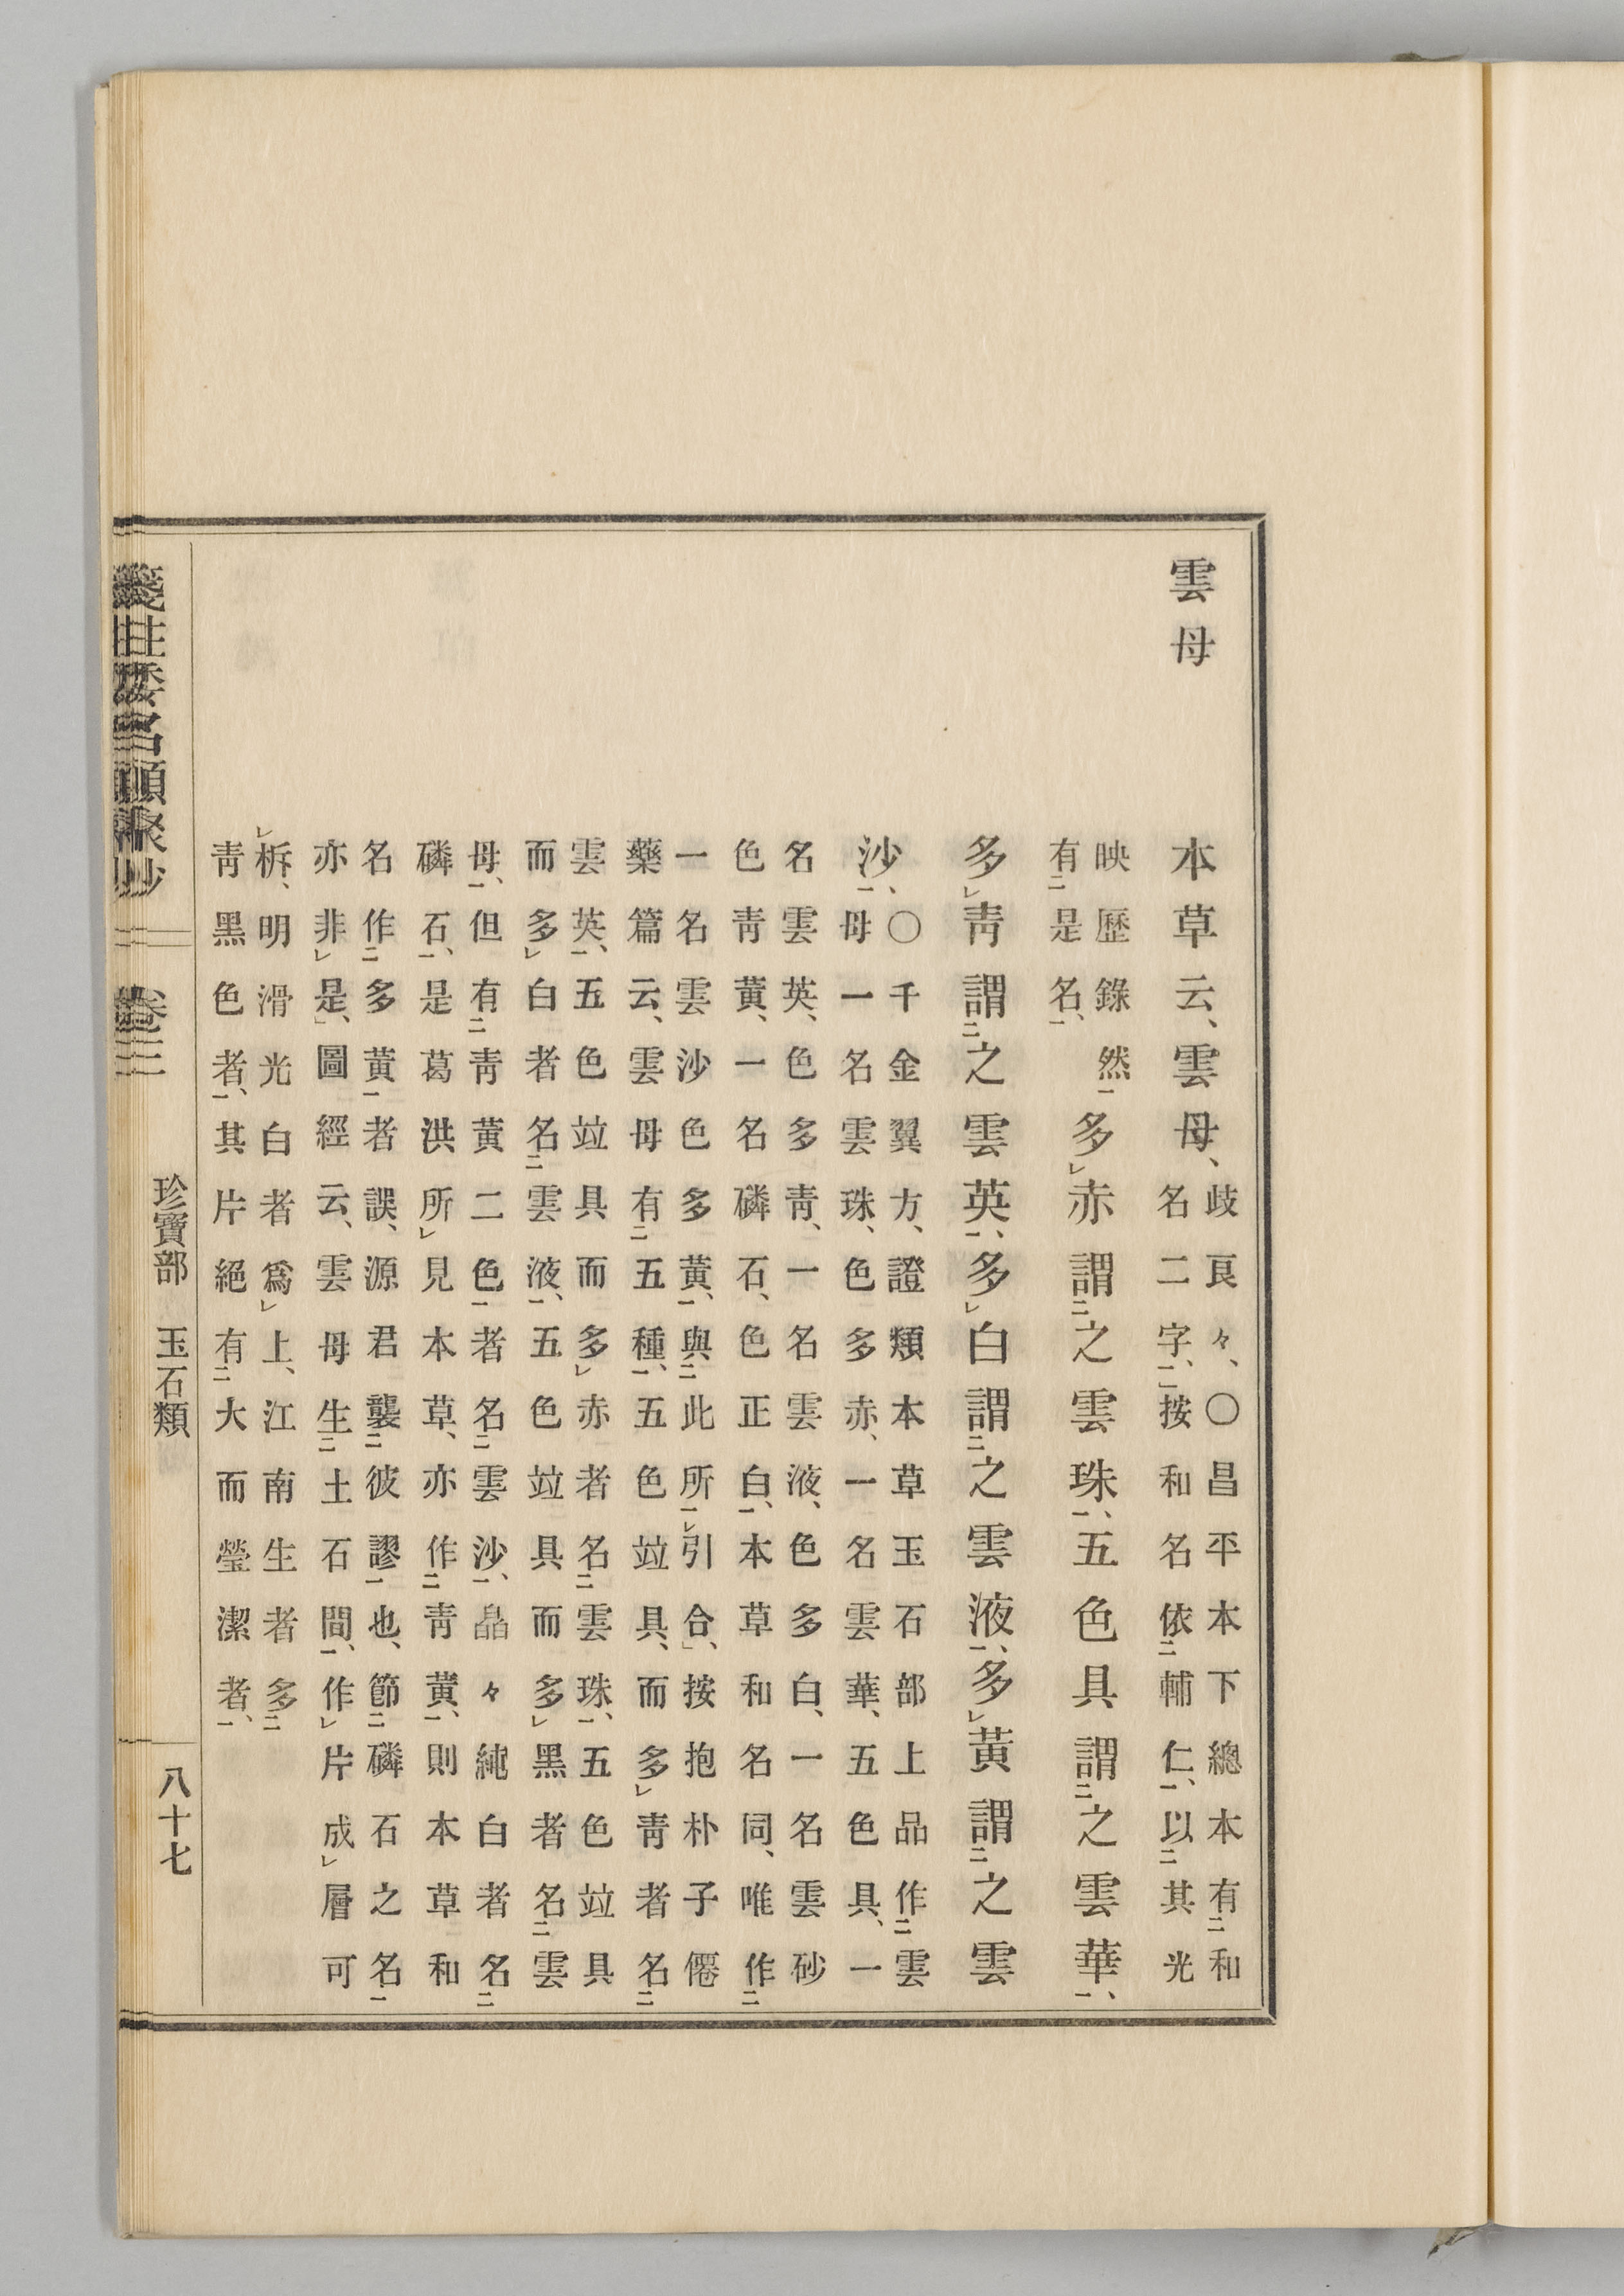 雲母
本草云、雲母、
歧良々、〇昌平本下總本有和
名二字、按和名依輔仁、以其光
映歷錄然
有是名、
多赤謂之雲珠、五色具謂之雲華、
多靑謂之雲英、多白謂之雲液、多黃謂之雲
沙、
〇千金翼方、證類本草玉石部上品作雲
母一名雲珠、色多赤、一名雲華、五色具、一
名雲英、色多靑、一名雲液、色多白、一名雲砂
色靑黃、一名磷石、色正白、本草和名同、唯作
一名雲沙色多黃、與此所引合、按抱朴子僊
藥篇云、雲母有五種、五色竝具、而多靑者名
雲英、五色竝具而多赤者名雲珠、五色竝具
而多白者名雲液、五色竝具而多黑者名雲
母、但有靑黃二色者名雲沙、皛々純白者名
磷石、是葛洪所見本草、亦作靑黃、則本草和
名作多黃者誤、源君襲彼謬也、節磷石之名
亦非是、圖經云、雲母生土石間、作片成層可
柝、明滑光白者爲上、江南生者多
靑黑色者、其片絕有大而瑩潔者、
箋註倭名類聚抄 卷三 珍寶部 玉石類 八十七